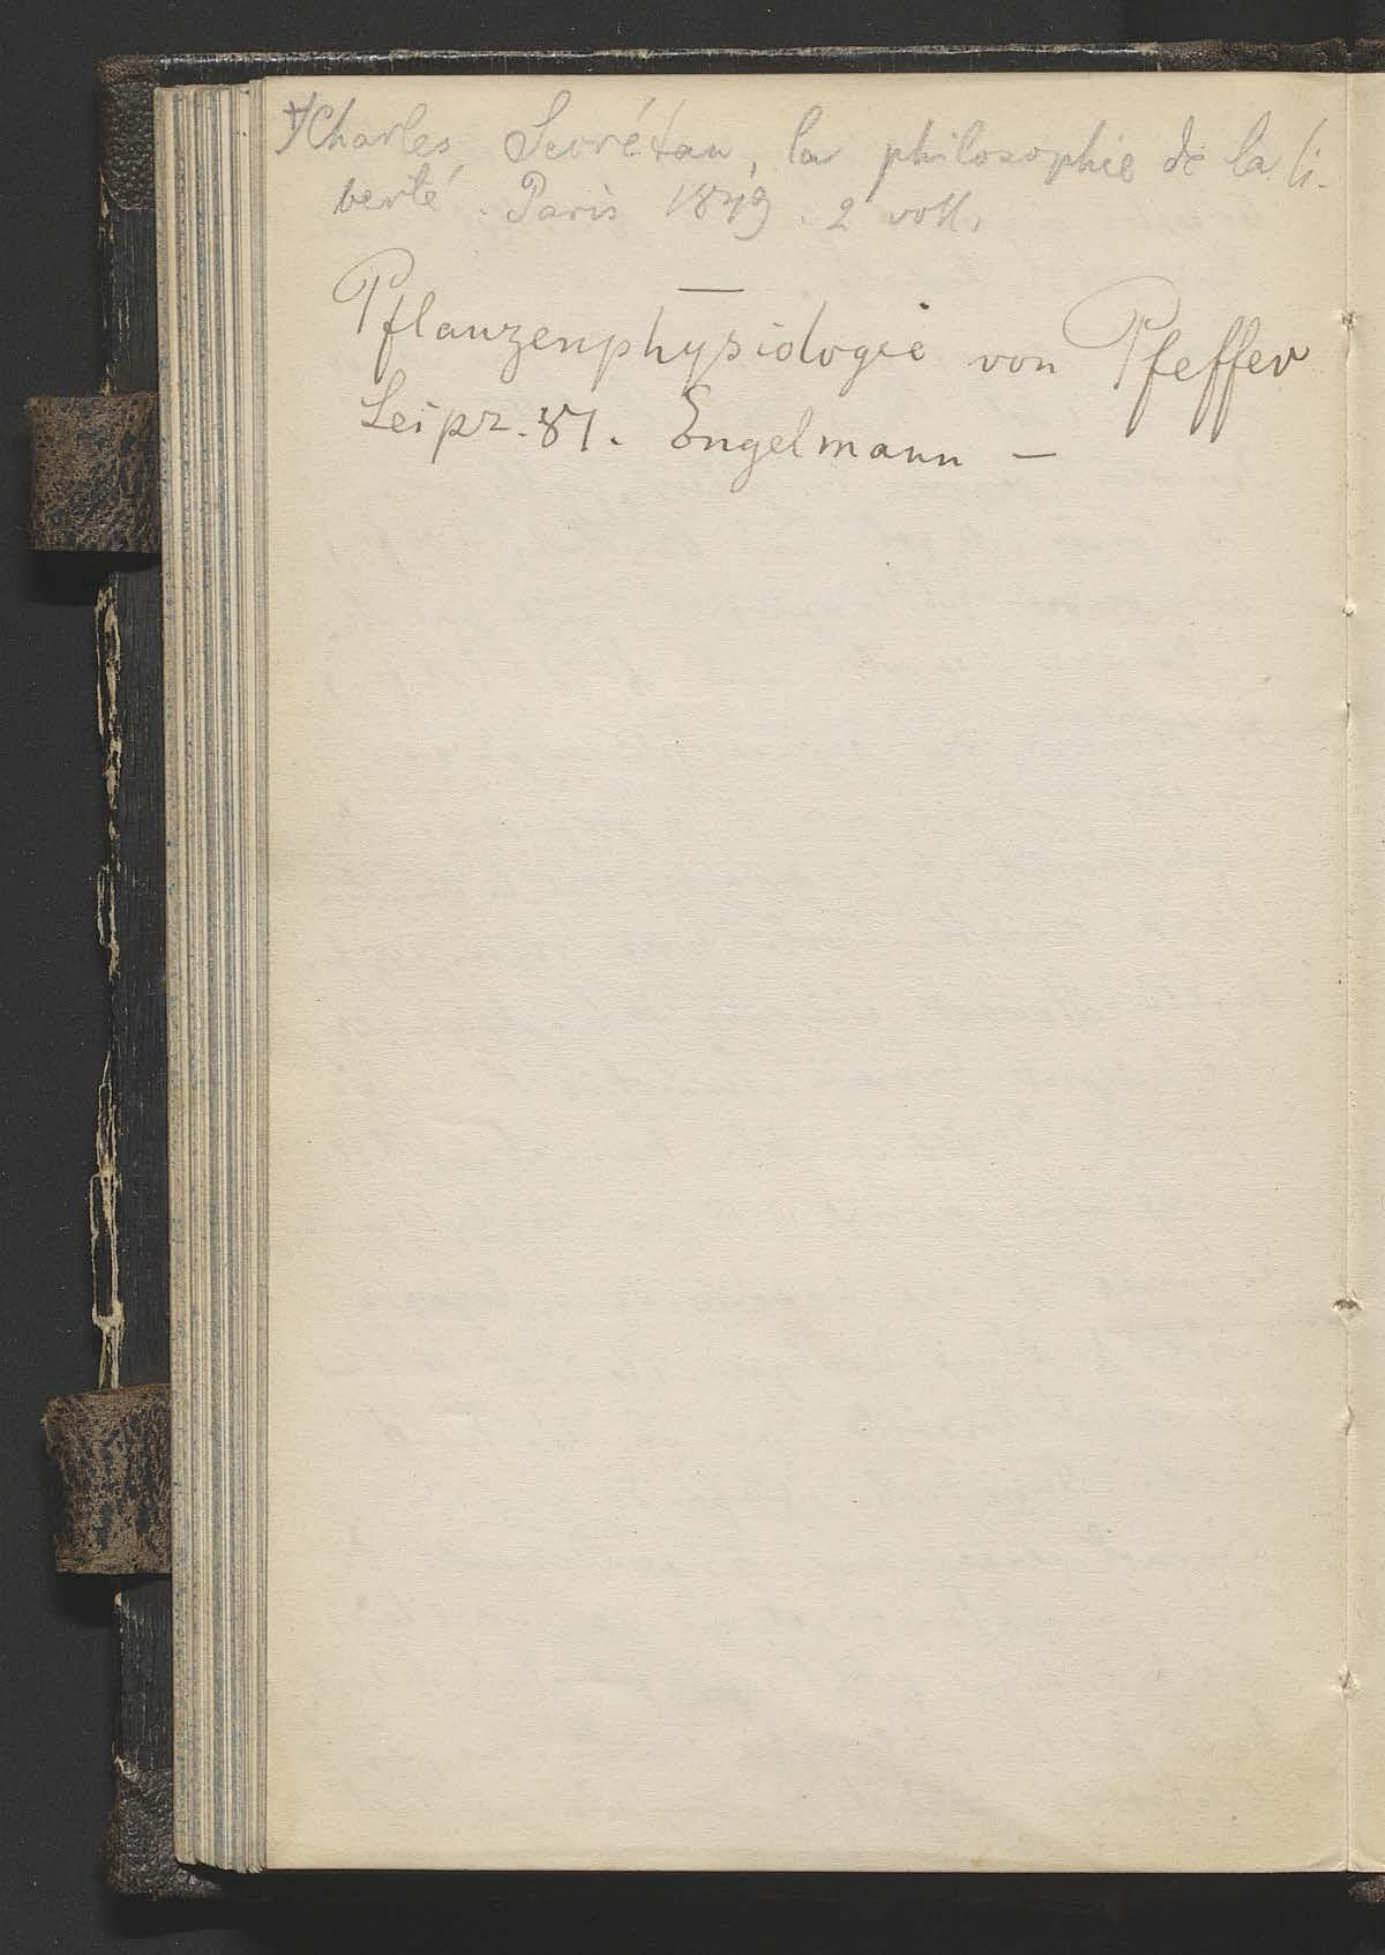 Charles Secrétan, la philosophie de la li-
berté. Paris 1849. 2 voll.
—
Pflanzenphysiologie von Pfeffer
Leipz. 81. Engelmann —